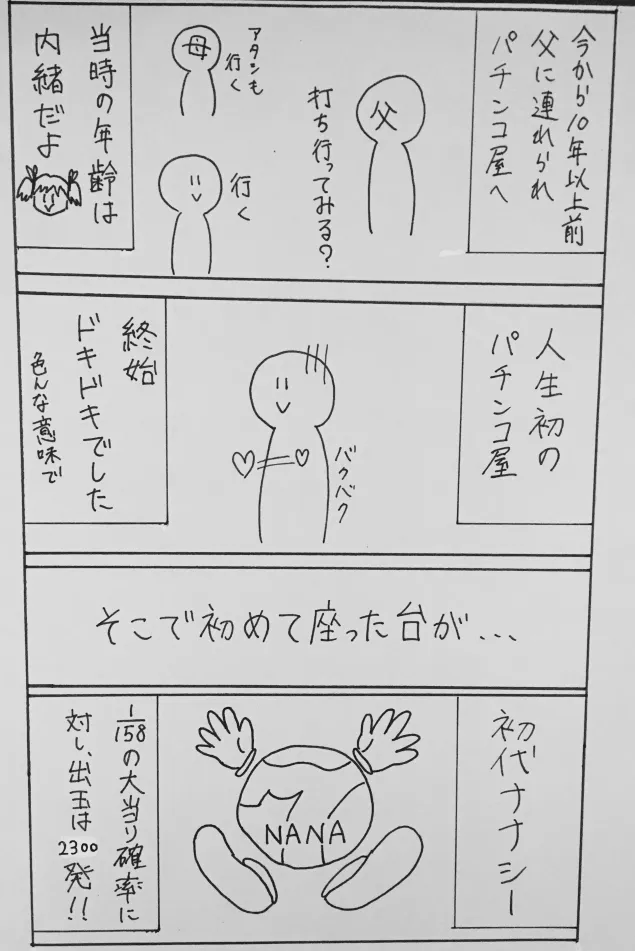 今から10年以上前
父に連れられ
パチンコ屋へ
父
打ち行ってみる?
母
アタシも
行く
行く
当時の年齢は
内緒だよ
人生初の
パチンコ屋
バクバク
終始
ドキドキでした
色んな意味で
そこで初めて座った台が...
初代ナナシー
7
NANA
1/158の大当り確率に
対し、出玉は
2300発!!